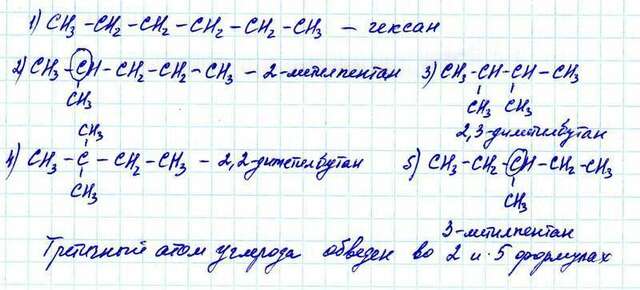 1) CH₃ - CH₂ - CH₂ - CH₂ - CH₂ - CH₃ - гексан
2) CH₃ - CH - CH₂ - CH₂ - CH₃ - 2-метилпентан
CH₃
3) CH₃ - CH - CH - CH₃
CH₃ CH₃
2,3-диметилбутан
CH₃
4) CH₃ - C - CH₂ - CH₃ - 2,2-диметилбутан
CH₃
5) CH₃ - CH₂ - CH - CH₂ - CH₃
CH₃
3-метилпентан
Третичный атом углерода обведен во 2 и 5 формулах